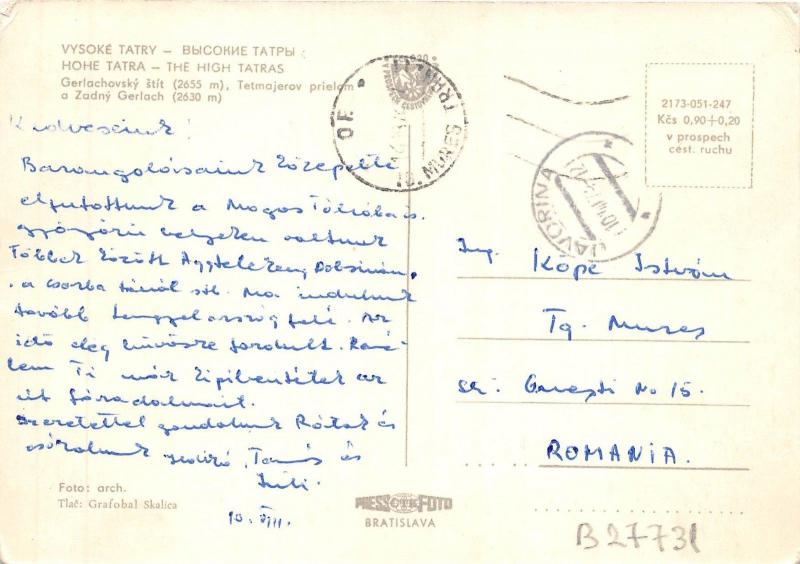 VYSOKÉ TATRY – ВЫСОКИЕ ТАТРЫ
HOHE TATRA – THE HIGH TATRAS
Gerlachovský štít (2655 m), Tetmajerov prielom
a Zadný Gerlach (2630 m)
Kedveseink!
Barangolásaink közepette
eljutottunk a Magas Tátrába is.
gyönyörű helyeken voltunk
Többek között Aggteleken, Dobsinán,
a Csorba tónál stb. Ma indulunk
tovább Lengyelország felé. Az
idő elég hűvösre fordult. Remé-
lem Ti már kipihentétek az
út fáradalmait.
Szeretettel gondolunk Rátok és
csókolunk Tamás és
Juli.
10. VIII.
Foto: arch.
Tlač: Grafobal Skalica
PRESSFOTO
ČTK
BRATISLAVA
2173-051-247
Kčs 0,90+0,20
v prospech
cest. ruchu
OF.
TG. MURES
JAVORINA
Ing. Kópé István
Tg. Mures
str. Gurești No 15.
ROMANIA.
B 27731